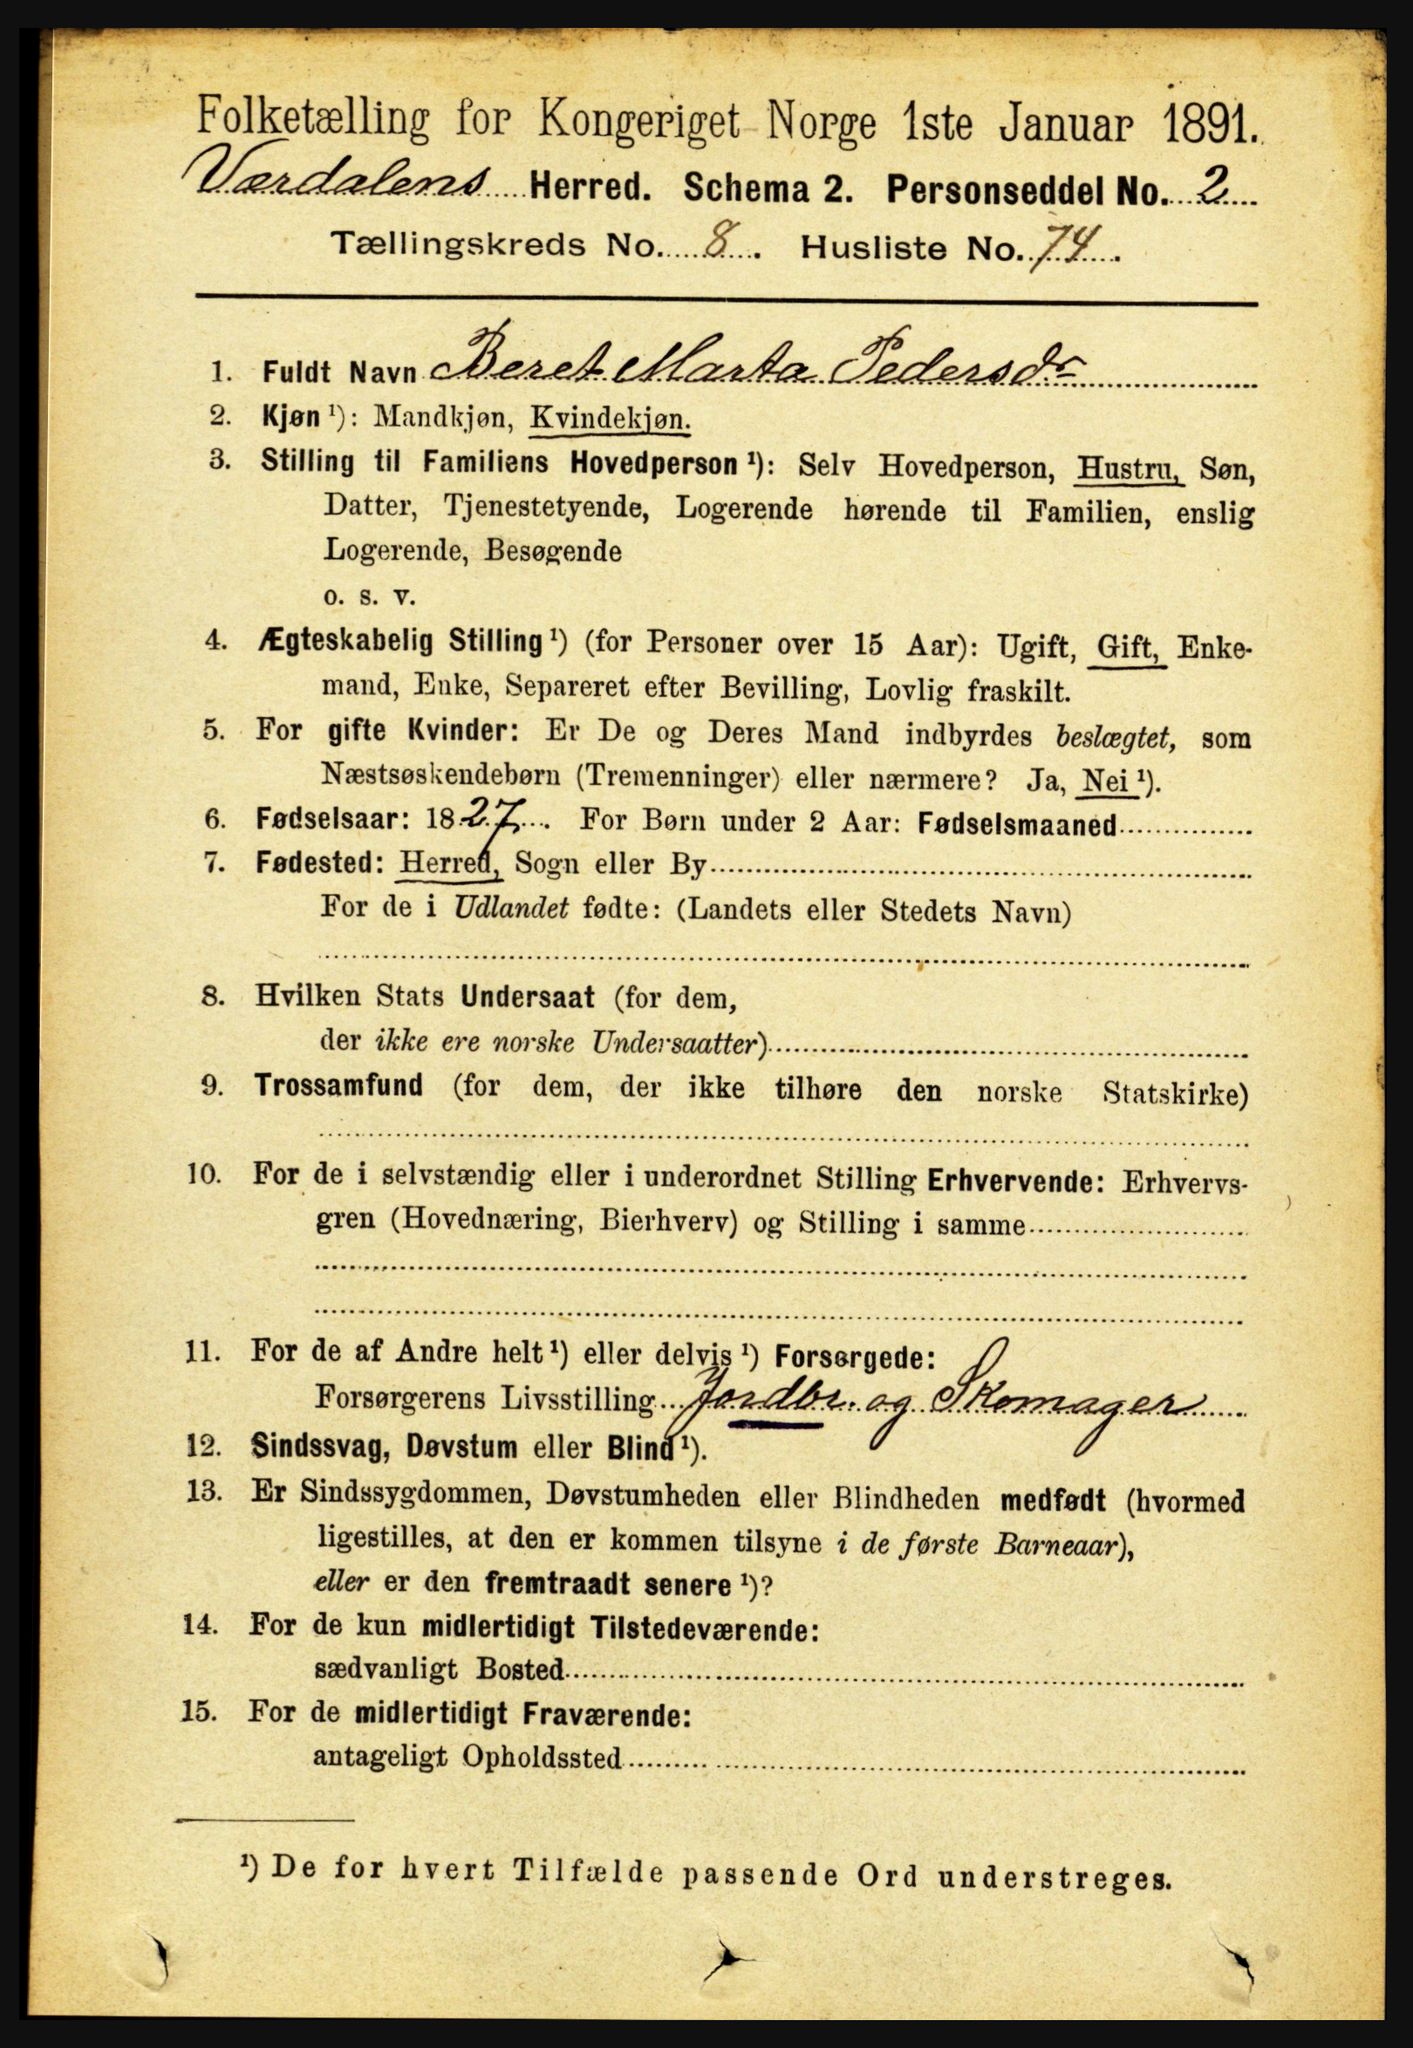 Folketælling for Kongeriget Norge 1ste Januar 1891.
Værdalens Herred. Schema 2. Personseddel No. 2
Tællingskreds No. 8. Husliste No. 74.
1. Fuldt Navn Beret Marta Pedersdr
2. Kjøn ¹): Mandkjøn, Kvindekjøn.
3. Stilling til Familiens Hovedperson ¹): Selv Hovedperson, Hustru, Søn,
Datter, Tjenestetyende, Logerende hørende til Familien, enslig
Logerende, Besøgende
o. s. v.
4. Ægteskabelig Stilling ¹) (for Personer over 15 Aar): Ugift, Gift, Enke-
mand, Enke, Separeret efter Bevilling, Lovlig fraskilt.
5. For gifte Kvinder: Er De og Deres Mand indbyrdes beslægtet, som
Næstsøskendebørn (Tremenninger) eller nærmere? Ja, Nei ¹).
6. Fødselsaar: 1827. For Børn under 2 Aar: Fødselsmaaned
7. Fødested: Herred, Sogn eller By
For de i Udlandet fødte: (Landets eller Stedets Navn)
8. Hvilken Stats Undersaat (for dem,
der ikke ere norske Undersaatter)
9. Trossamfund (for dem, der ikke tilhøre den norske Statskirke)
10. For de i selvstændig eller i underordnet Stilling Erhvervende: Erhvervs-
gren (Hovednæring, Bierhverv) og Stilling i samme
11. For de af Andre helt ¹) eller delvis ¹) Forsørgede:
Forsørgerens Livsstilling Jordbr. og Skomager
12. Sindssvag, Døvstum eller Blind ¹).
13. Er Sindssygdommen, Døvstumheden eller Blindheden medfødt (hvormed
ligestilles, at den er kommen tilsyne i de første Barneaar),
eller er den fremtraadt senere ¹)?
14. For de kun midlertidigt Tilstedeværende:
sædvanligt Bosted
15. For de midlertidigt Fraværende:
antageligt Opholdssted
¹) De for hvert Tilfælde passende Ord understreges.